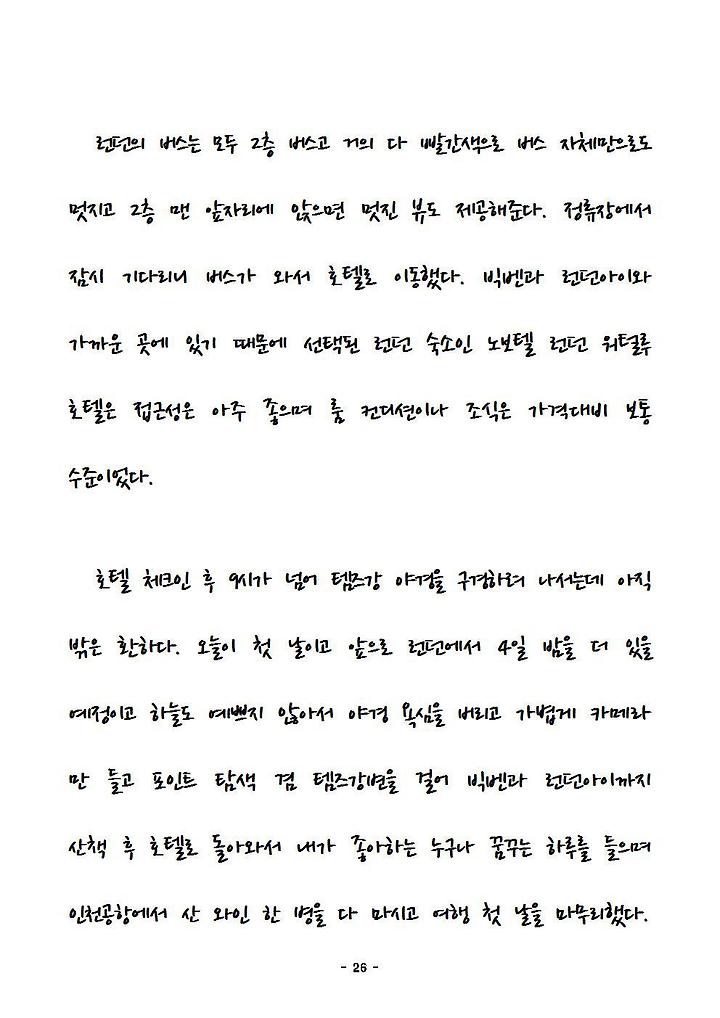 런던의 버스는 모두 2층 버스고 거의 다 빨간색으로 버스 자체만으로도
멋지고 2층 맨 앞자리에 앉으면 멋진 뷰도 제공해준다. 정류장에서
잠시 기다리니 버스가 와서 호텔로 이동했다. 빅벤과 런던아이와
가까운 곳에 있기 때문에 선택된 런던 숙소인 노보텔 런던 워털루
호텔은 접근성은 아주 좋으며 룸 컨디션이나 조식은 가격대비 보통
수준이었다.
호텔 체크인 후 9시가 넘어 템즈강 야경을 구경하려 나서는데 아직
밖은 환하다. 오늘이 첫 날이고 앞으로 런던에서 4일 밤을 더 있을
예정이고 하늘도 예쁘지 않아서 야경 욕심을 버리고 가볍게 카메라
만 들고 포인트 탐색 겸 템즈강변을 걸어 빅벤과 런던아이까지
산책 후 호텔로 돌아와서 내가 좋아하는 누구나 꿈꾸는 하루를 들으며
인천공항에서 산 와인 한 병을 다 마시고 여행 첫 날을 마무리했다.
- 26 -